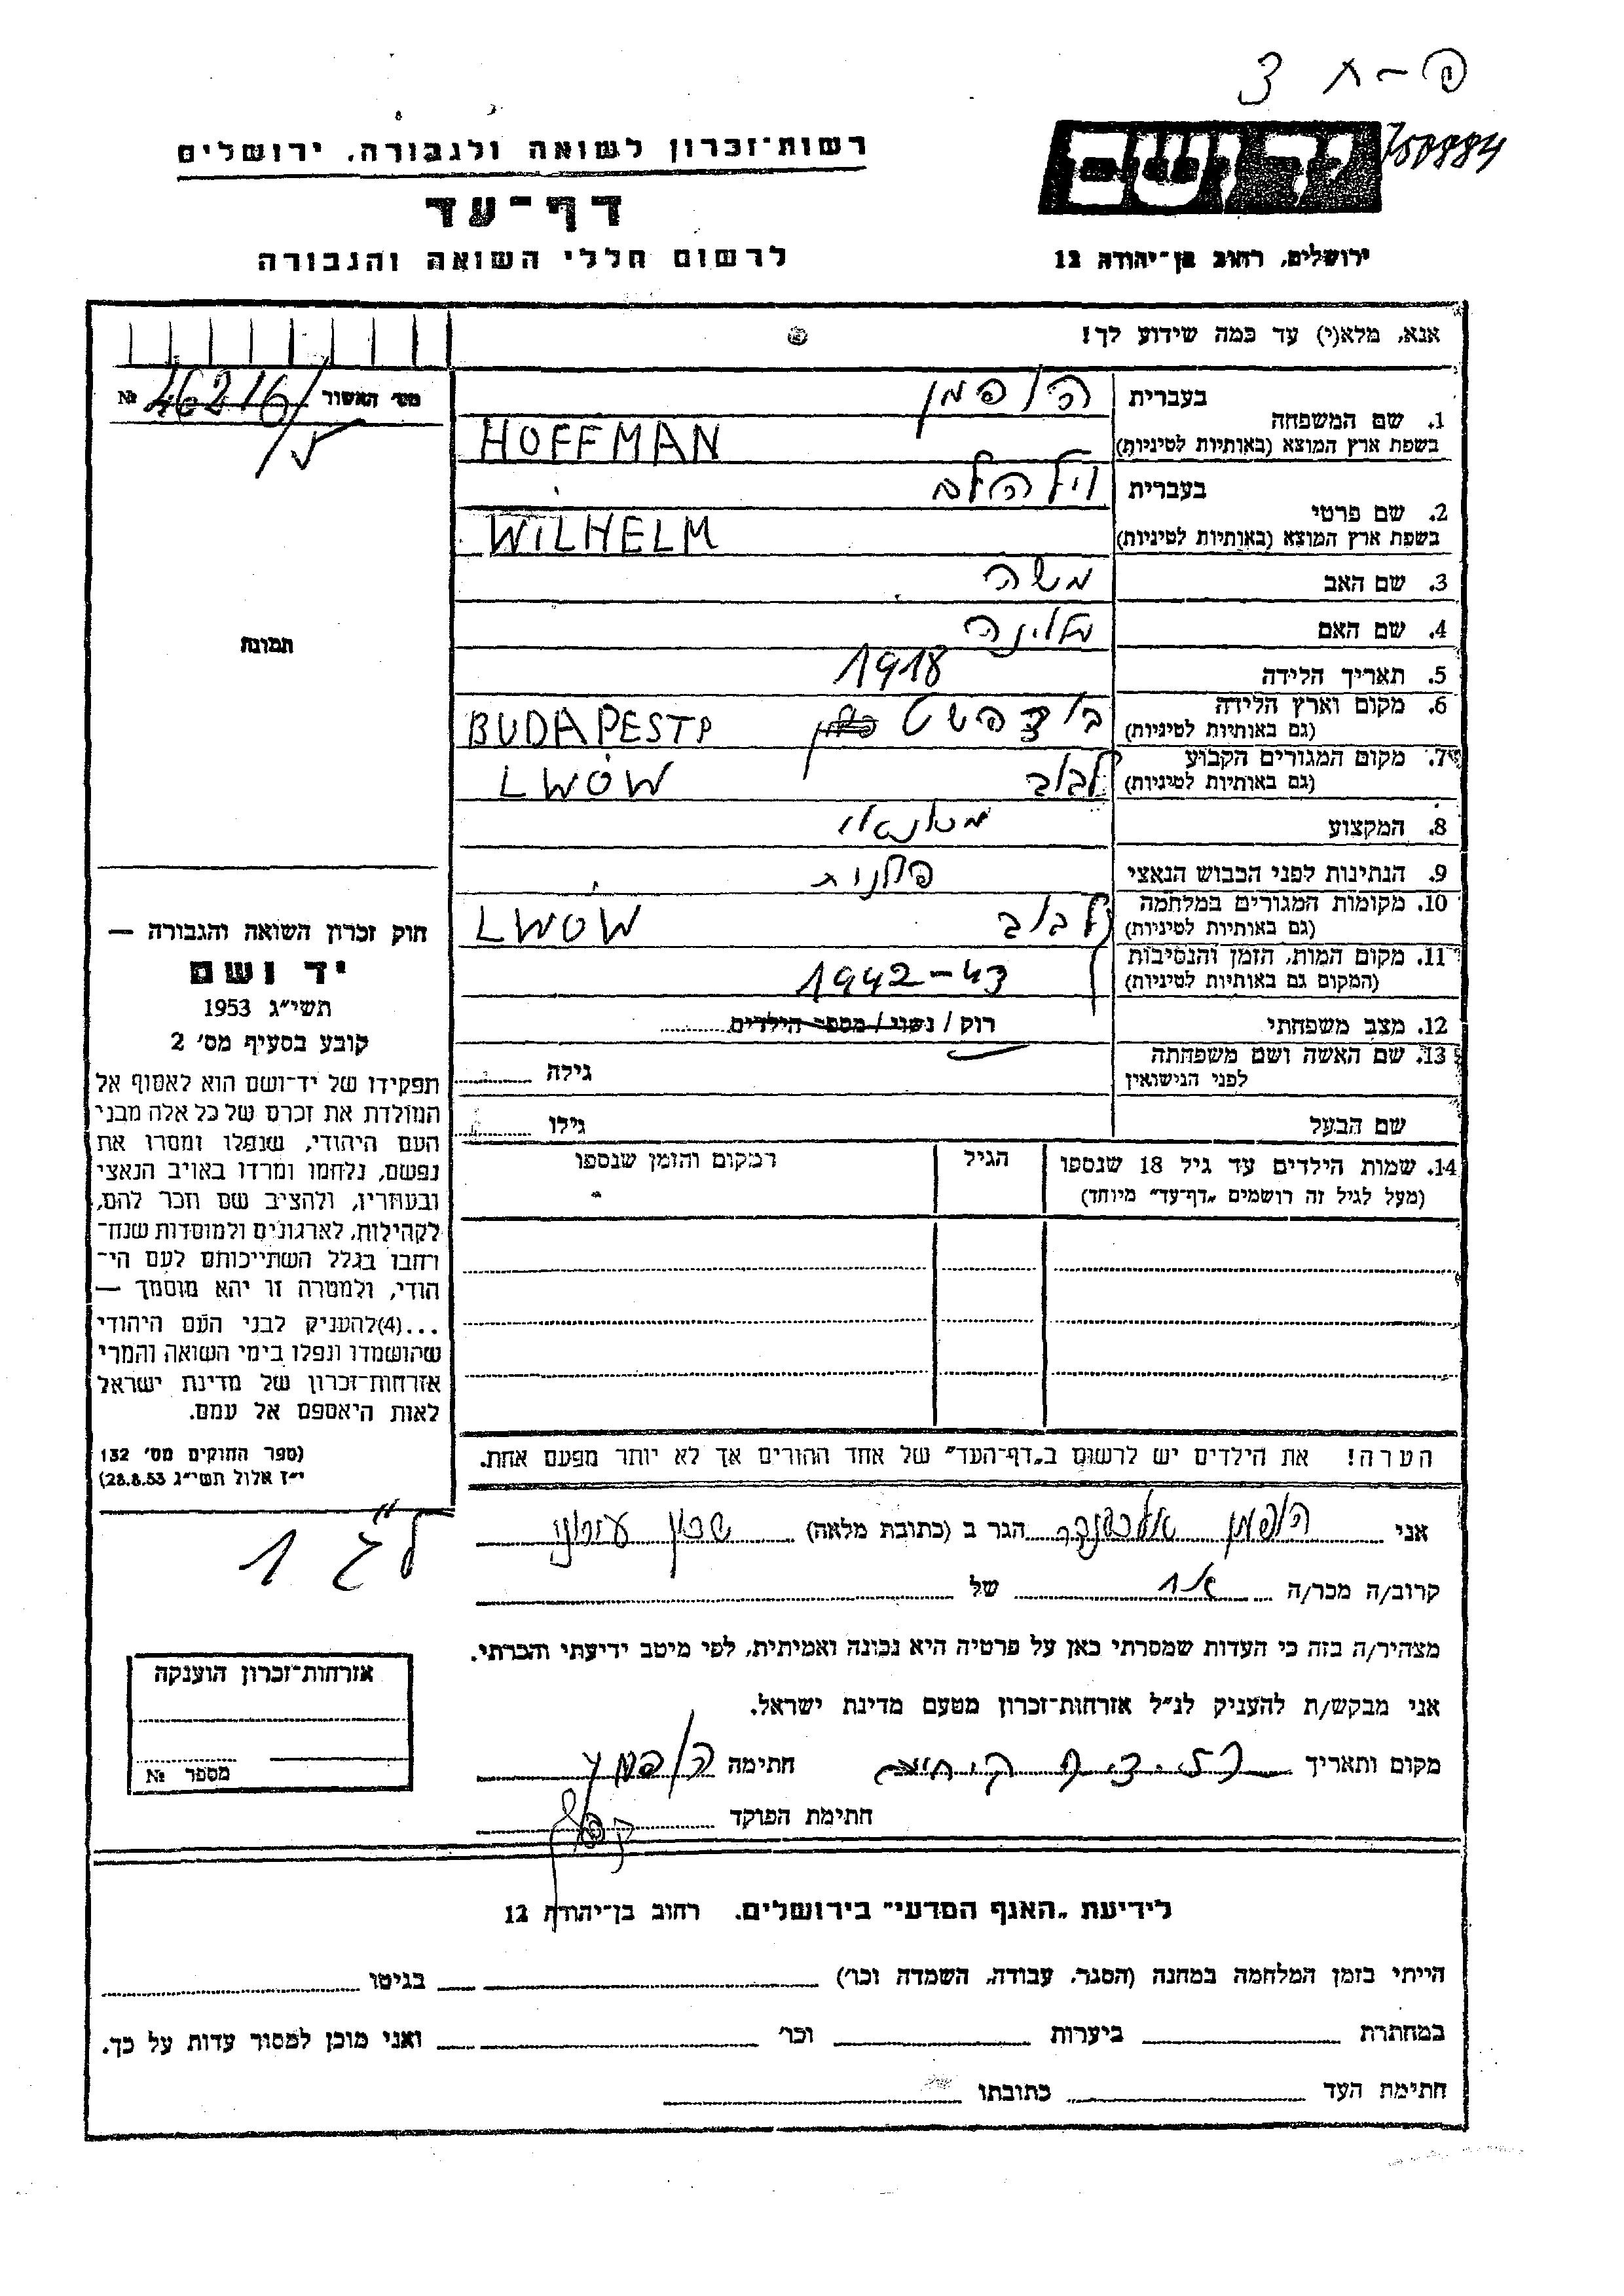 פ-ח 3
750884
רשות־זכרון לשואה ולגבורה, ירושלים
דף־עד
לרשום חללי השואה והגבורה
יד ושם
ירושלים, רחוב בן־יהודה 12
אנא, מלא(י) עד כמה שידוע לך!
מס׳ האשור № 46216
1. שם המשפחה
בעברית הופמן
בשפת ארץ המוצא (באותיות לטיניות) HOFFMAN
2. שם פרטי
בעברית וילהלם
בשפת ארץ המוצא (באותיות לטיניות) WILHELM
3. שם האב משה
4. שם האם
5. תאריך הלידה 1918
6. מקום וארץ הלידה (גם באותיות לטיניות) בודפשט BUDAPEST
7. מקום המגורים הקבוע (גם באותיות לטיניות) לבוב LWÓW
8. המקצוע
9. הנתינות לפני הכבוש הנאצי פולנית
10. מקומות המגורים במלחמה (גם באותיות לטיניות) לבוב LWÓW
11. מקום המות, הזמן והנסיבות (המקום גם באותיות לטיניות) 1942-43
12. מצב משפחתי רוק / נשוי / מספר הילדים
13. שם האשה ושם משפחתה לפני הנישואין גילה
שם הבעל גילו
14. שמות הילדים עד גיל 18 שנספו
(מעל לגיל זה רושמים „דף־עד” מיוחד)
הגיל
המקום והזמן שנספו
הערה! את הילדים יש לרשום ב„דף־העד” של אחד ההורים אך לא יותר מפעם אחת.
תמונה
חוק זכרון השואה והגבורה —
יד ושם
תשי״ג 1953
קובע בסעיף מס׳ 2
תפקידו של יד־ושם הוא לאסוף אל
המולדת את זכרם של כל אלה מבני
העם היהודי, שנפלו ומסרו את
נפשם, נלחמו ומרדו באויב הנאצי
ובעוזריו, ולהציב שם וזכר להם,
לקהילות, לארגונים ולמוסדות שנח־
רחבו בגלל השתייכותם לעם הי־
הודי, ולמטרה זו יהא מוסמך —
...(4)להעניק לבני העם היהודי
שהושמדו ונפלו בימי השואה והמרי
אזרחות־זכרון של מדינת ישראל
לאות היאספם אל עמם.
(ספר החוקים מס׳ 132
י״ז אלול תשי״ג 28.8.53)
אני הופמן אלכסנדר הגר ב (כתובת מלאה) שכון
קרוב/ה מכר/ה אח של
מצהיר/ה בזה כי העדות שמסרתי כאן על פרטיה היא נכונה ואמיתית, לפי מיטב ידיעתי והכרתי.
אני מבקש/ת להעניק לנ״ל אזרחות־זכרון מטעם מדינת ישראל.
מקום ותאריך חתימה הופמן
חתימת הפוקד
אזרחות־זכרון הוענקה
מספר №
לידיעת „האגף המדעי” בירושלים, רחוב בן־יהודה 12
הייתי בזמן המלחמה במחנה (הסגר, עבודה, השמדה וכו׳) בגיטו
במחתרת ביערות וכו׳ ואני מוכן למסור עדות על כך.
חתימת העד כתובתו